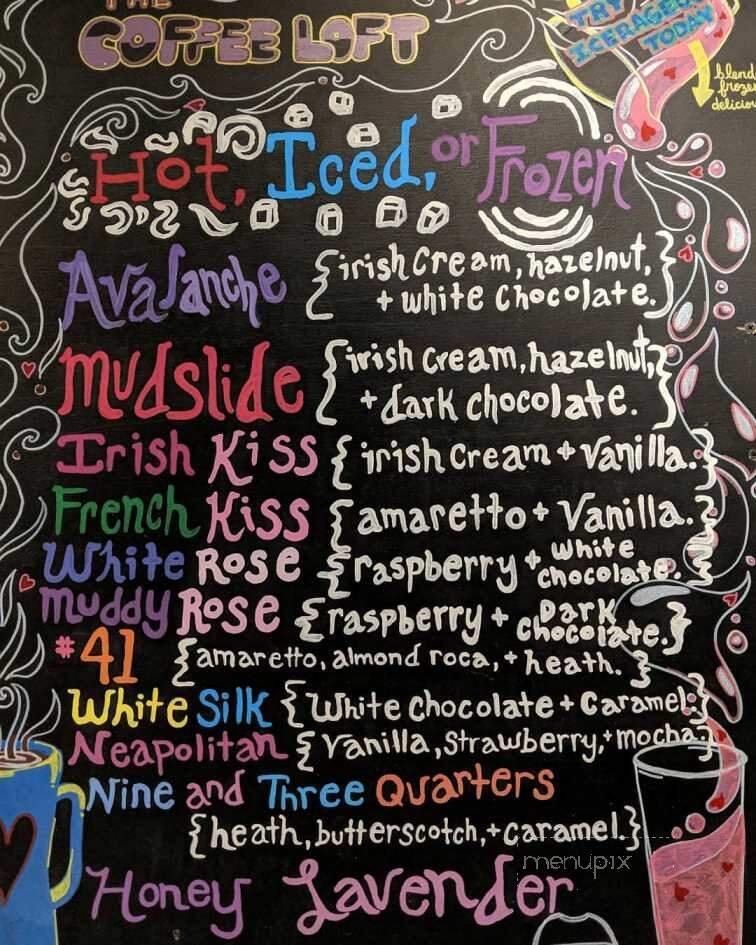 THE
COFFEE LOFT
TRY
ICERAGED
TODAY
blend
frozen
delicious
Hot, Iced, or Frozen
Avalanche {irish cream, hazelnut,
+ white chocolate.}
Mudslide {irish cream, hazelnut,
+ dark chocolate.}
Irish Kiss {irish cream + vanilla.}
French Kiss {amaretto + Vanilla.}
White Rose {raspberry + white
chocolate.}
muddy Rose {raspberry + DARK
chocolate.}
#41 {amaretto, almond roca, + heath.}
White Silk {White Chocolate + Caramel.}
Neapolitan {Vanilla, Strawberry, + mocha}
Nine and Three Quarters
{heath, butterscotch, + caramel.}
Honey Lavender
menupix